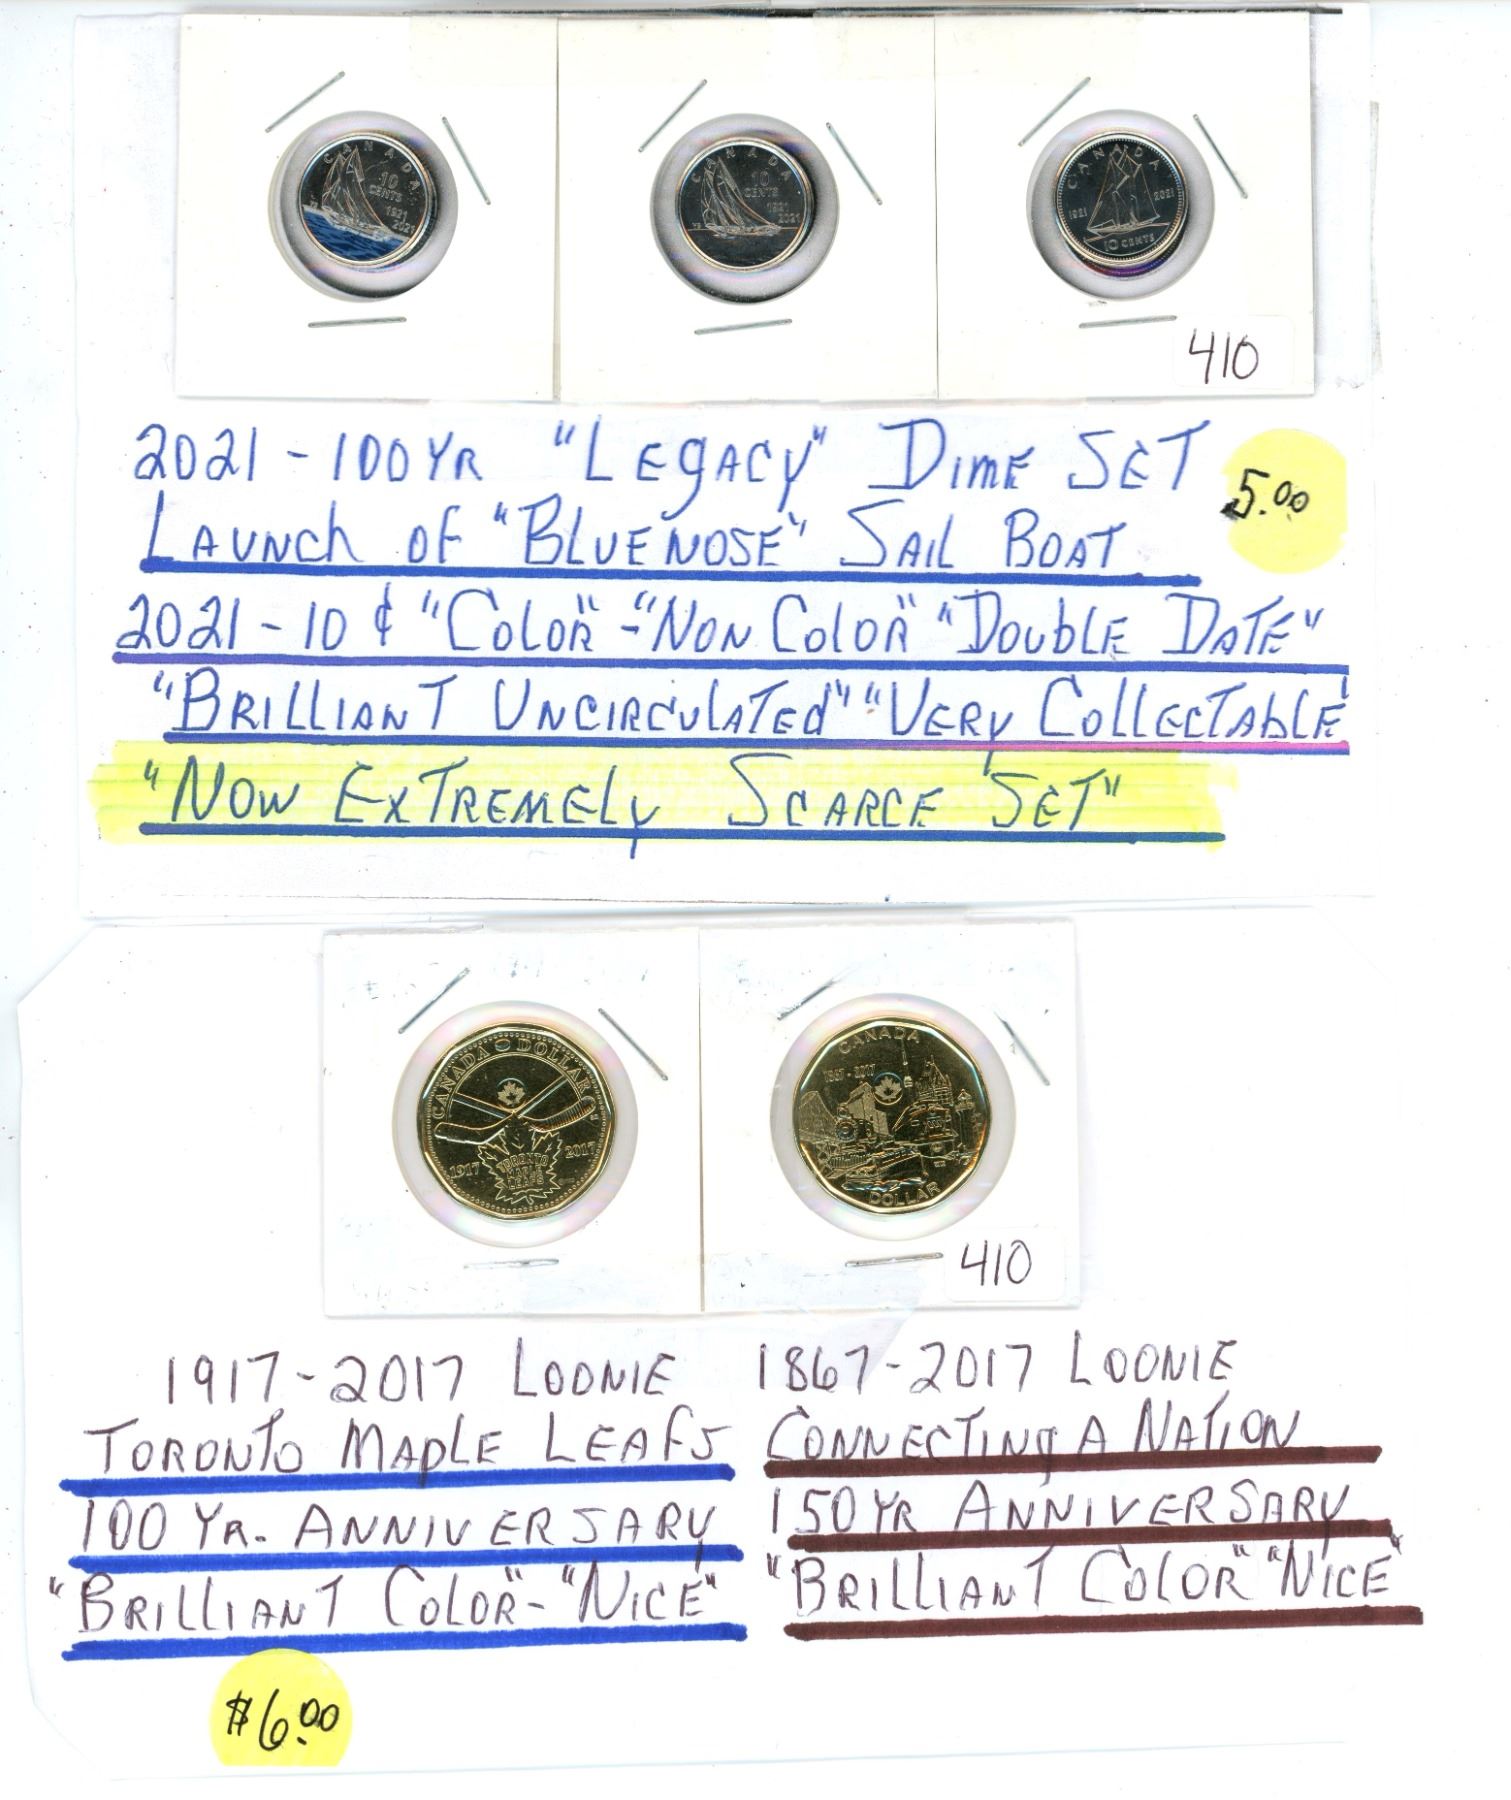 CANADA
10
CENTS
1921
2021
CANADA
10
CENTS
1921
2021
CANADA
1921 2021
10 CENTS
410
2021 - 100 YR "LEGACY" DIME SET
5.00
LAUNCH OF "BLUENOSE" SAIL BOAT
2021 - 10 ¢ "COLOR" - "NON COLOR" "DOUBLE DATE"
"BRILLIANT UNCIRCULATED" "VERY COLLECTABLE"
"NOW EXTREMELY SCARCE SET"
CANADA DOLLAR
1917 2017
TORONTO
MAPLE
LEAFS
CANADA
1867 - 2017
DOLLAR
410
1917 - 2017 LOONIE
TORONTO MAPLE LEAFS
100 YR. ANNIVERSARY
"BRILLIANT COLOR" - "NICE"
$6.00
1867 - 2017 LOONIE
CONNECTING A NATION
150 YR ANNIVERSARY
"BRILLIANT COLOR" "NICE"